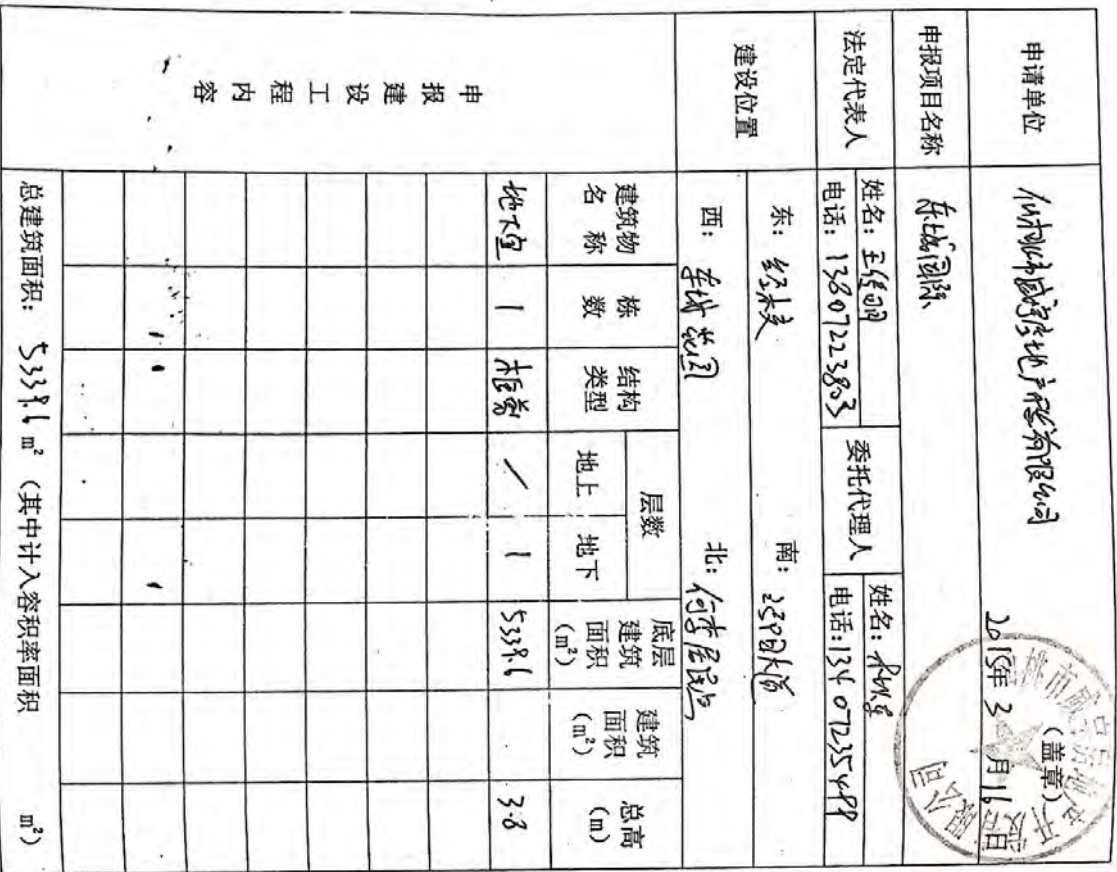 申请单位
仙桃市 房地产 有限公司
(盖章)
2015年 3月16日
申报项目名称
东城国际
法定代表人
姓名:王
电话:13807223803
委托代理人
姓名:
电话:134 07235499
建设位置
东:
南: 大道
西: 花园
北:何李
申报建设工程内容
建筑物名称
栋数
结构类型
层数
地上
地下
底层建筑面积(m²)
建筑面积(m²)
总高(m)
地下室 1 框剪 / 1 5339.6 3.8
总建筑面积: 5339.6 m² (其中计入容积率面积 m²)